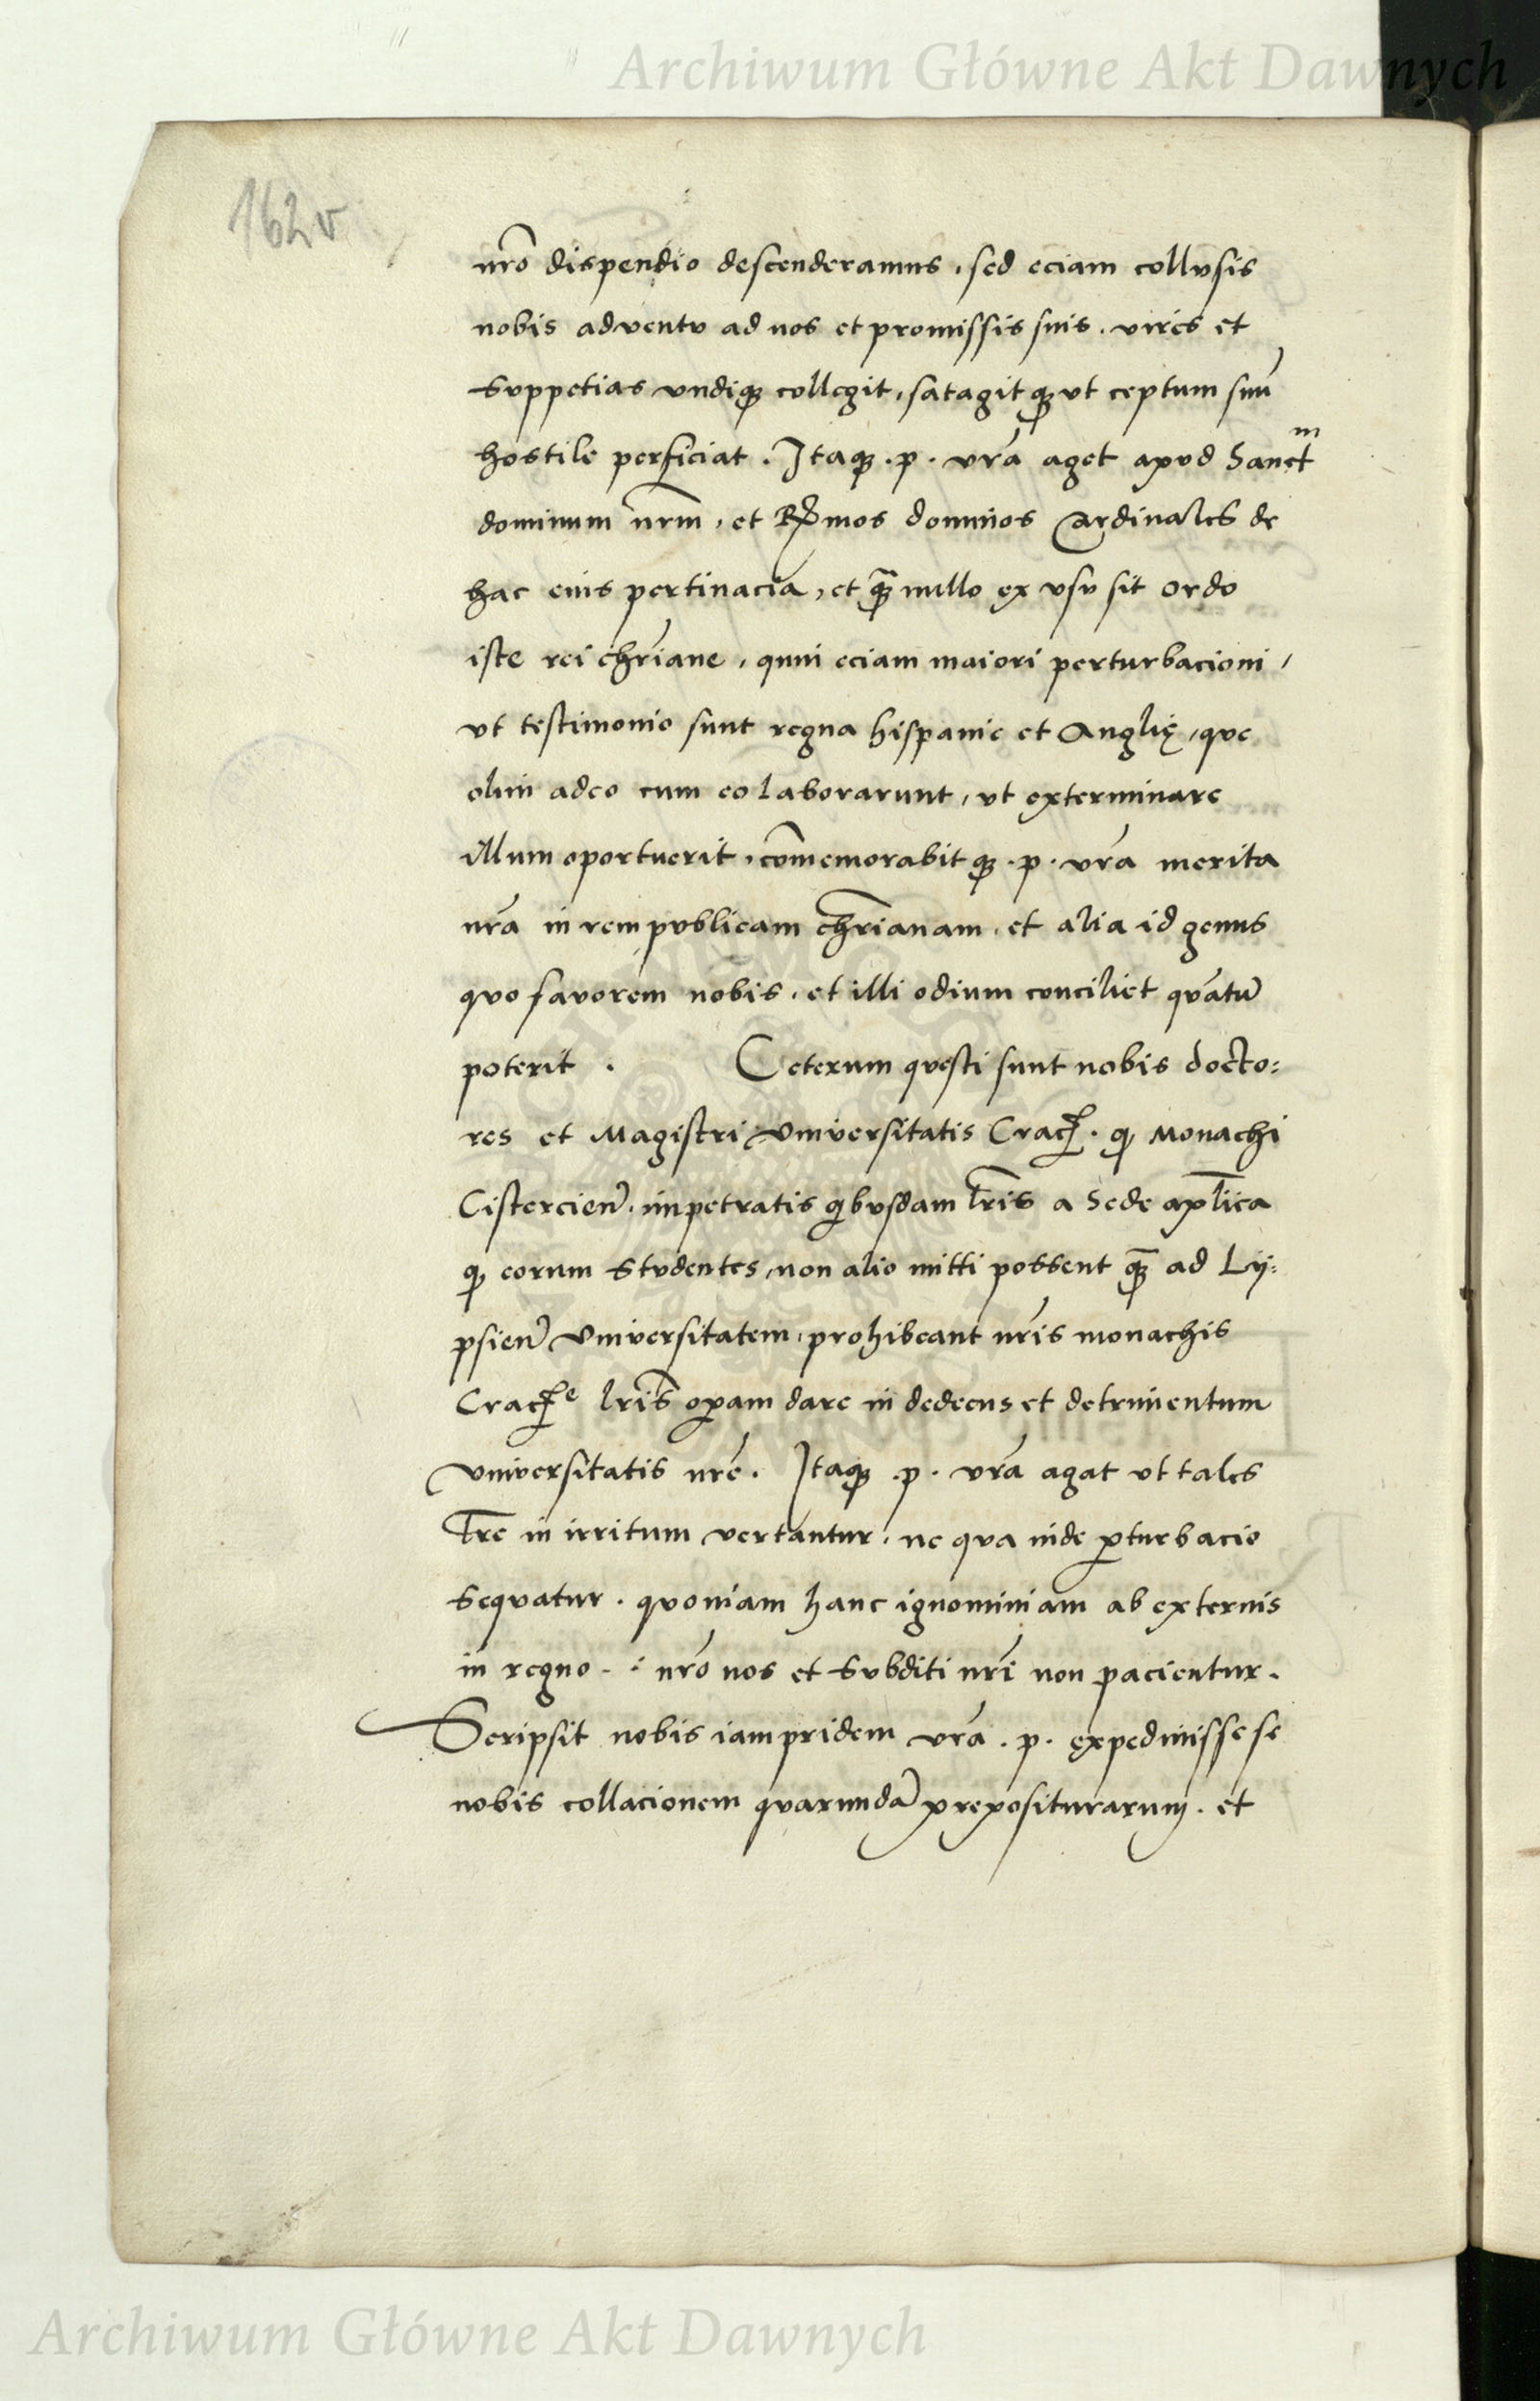 Archiwum Główne Akt Dawnych
162v
nr̃o dispendio descenderamus, sed eciam collvsis
nobis adventv ad nos et promissis suis. vires et
svppetias vndiqꝫ collegit, satagitqꝫ vt ceptum suũ
hostile perficiat. Itaqꝫ .p. vr̃a aget apvd Sanctᵐ
dominum nr̃m, et R̃dmos dominos Cardinales de
hac eius pertinacia, et qꝫ̃ nullo ex vsv sit ordo
iste rei chr̃iane, quin eciam maiori perturbacioni,
vt testimonio sunt regna hispanie et Anglię, qve
olim adeo cum eo laborarunt, vt exterminare
illum oportverit, cõmemorabitqꝫ .p. vr̃a merita
nr̃a in rempvblicam chr̃ianam, et alia id genus
qvo favorem nobis, et illi odium conciliet qvãtũ
poterit . Ceterum qvesti sunt nobis docto:
res et Magistri Vniversitatis Cracꝭ. ꝙ Monachi
Cistercieñ. impetratis qibvsdam lr̃is a Sede apl̃ica
ꝙ eorum stvdentes, non alio mitti possent qꝫ̃ ad Ly:
psieñ Vniversitatem, prohibeant nr̃is monachis
Cracꝭᵉ lr̃is oꝑam dare in dedecus et detrimentum
Vniversitatis nr̃e. Itaqꝫ .p. vr̃a agat vt tales
lr̃e in irritum vertantur, ne qva inde ꝑturbacio
seqvatur. qvoniam hanc ignominiam ab externis
in regno - : nr̃o nos et svbditi nr̃i non pacientur.
Scripsit nobis iampridem vr̃a .p. expedivisse se
nobis collacionem qvarundã prepositurarum. et
Archiwum Główne Akt Dawnych